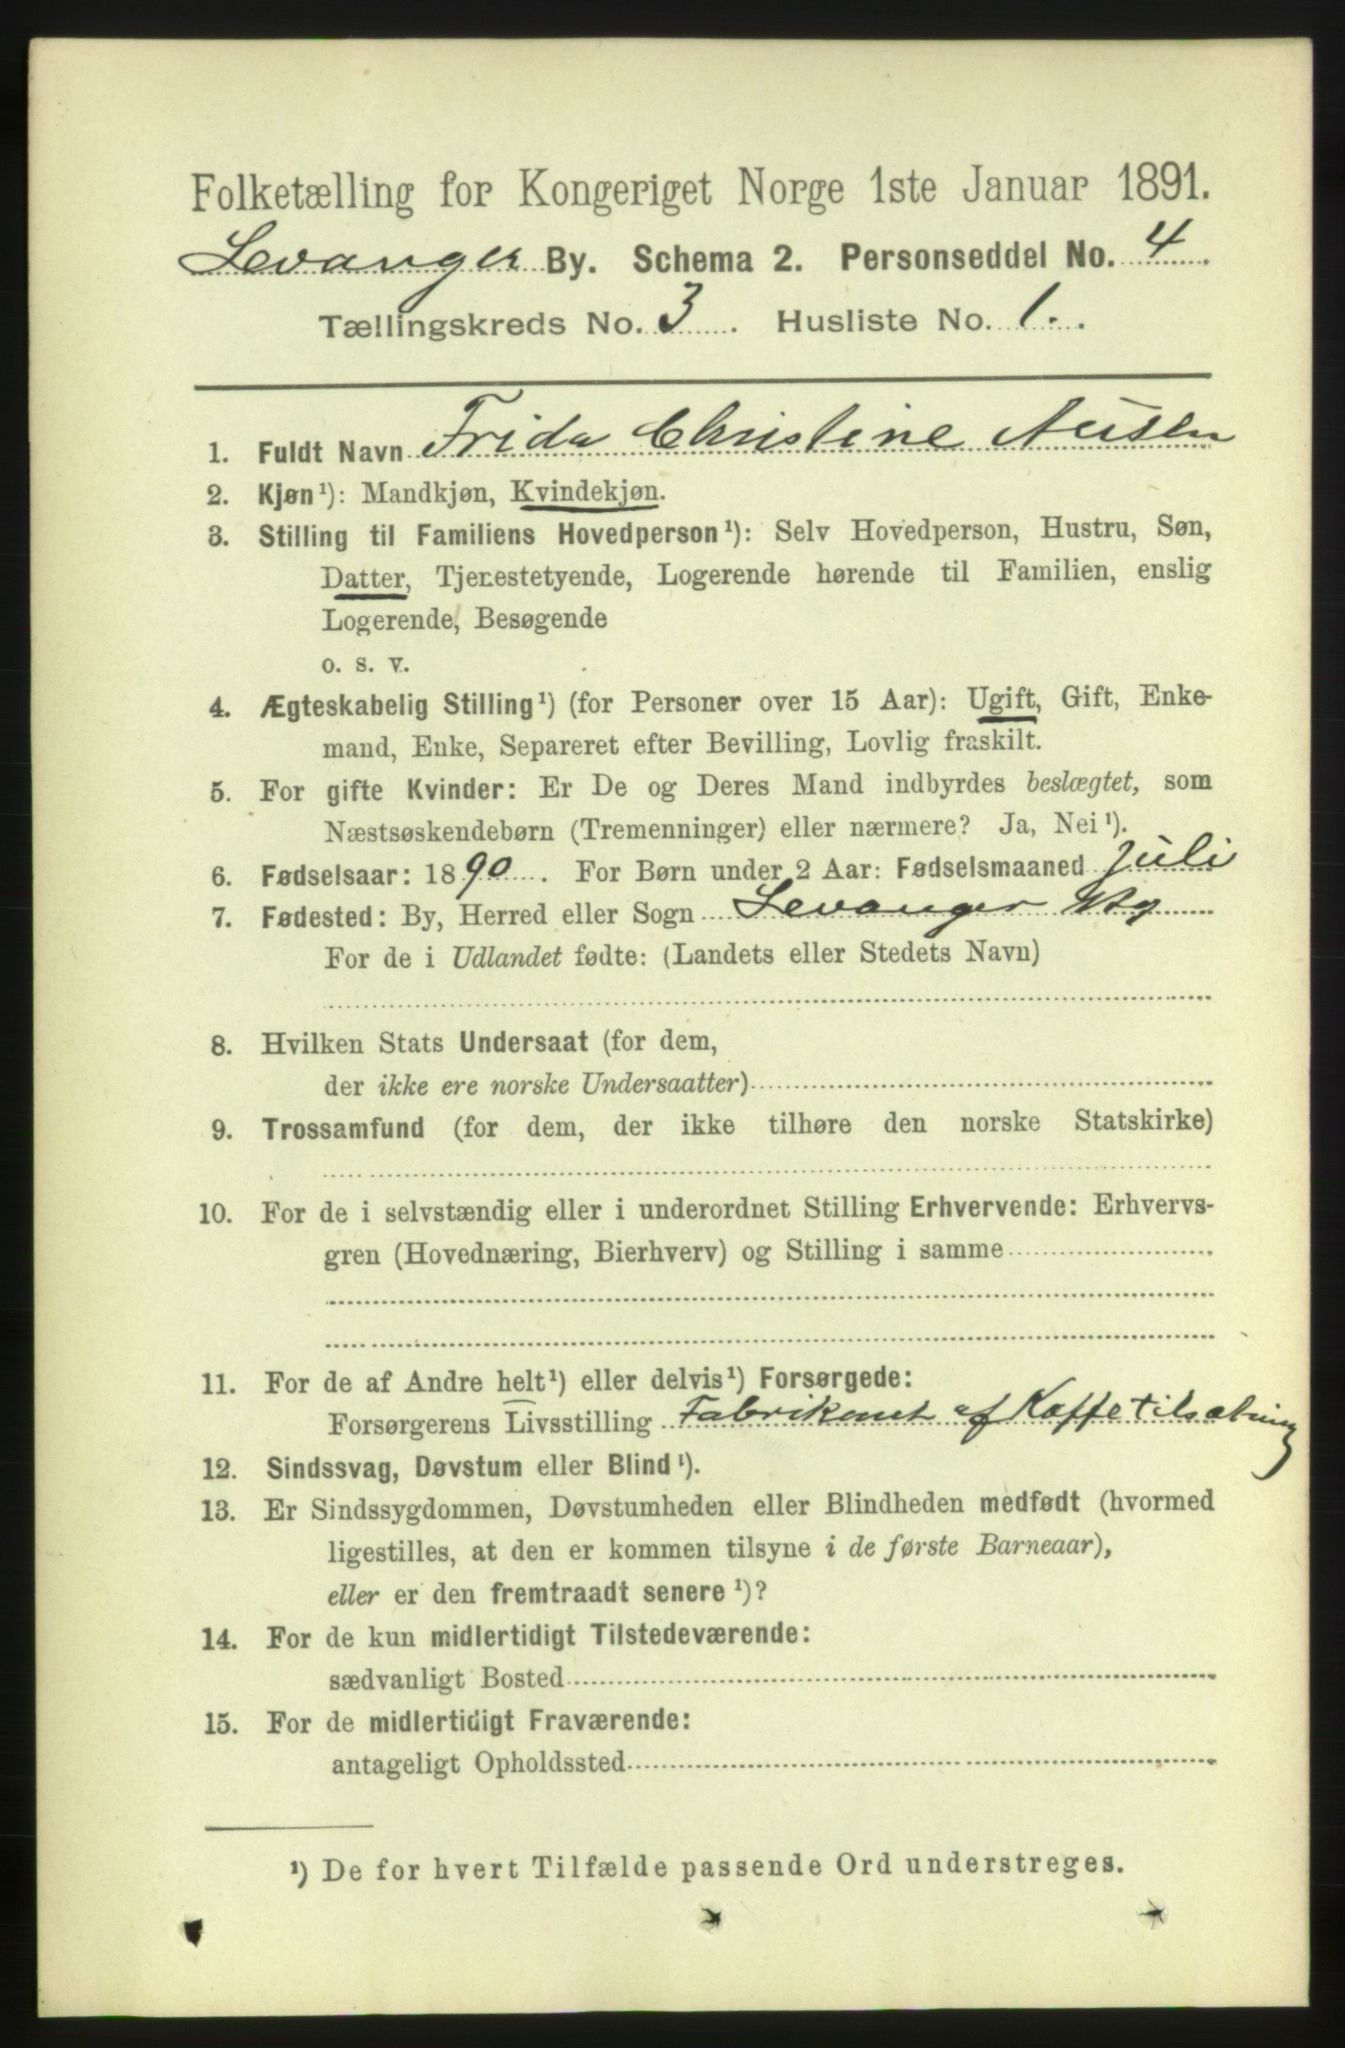 Folketælling for Kongeriget Norge 1ste Januar 1891.
Levanger By. Schema 2. Personseddel No. 4
Tællingskreds No. 3. Husliste No. 1.
1. Fuldt Navn Frida Christine Ausen
2. Kjøn¹): Mandkjøn, Kvindekjøn.
3. Stilling til Familiens Hovedperson¹): Selv Hovedperson, Hustru, Søn,
Datter, Tjenestetyende, Logerende hørende til Familien, enslig
Logerende, Besøgende
o. s. v.
4. Ægteskabelig Stilling¹) (for Personer over 15 Aar): Ugift, Gift, Enke-
mand, Enke, Separeret efter Bevilling, Lovlig fraskilt.
5. For gifte Kvinder: Er De og Deres Mand indbyrdes beslægtet, som
Næstsøskendebørn (Tremenninger) eller nærmere? Ja, Nei¹).
6. Fødselsaar: 1890. For Børn under 2 Aar: Fødselsmaaned Juli
7. Fødested: By, Herred eller Sogn Levanger By
For de i Udlandet fødte: (Landets eller Stedets Navn)
8. Hvilken Stats Undersaat (for dem,
der ikke ere norske Undersaatter)
9. Trossamfund (for dem, der ikke tilhøre den norske Statskirke)
10. For de i selvstændig eller i underordnet Stilling Erhvervende: Erhvervs-
gren (Hovednæring, Bierhverv) og Stilling i samme
11. For de af Andre helt¹) eller delvis¹) Forsørgede:
Forsørgerens Livsstilling Fabrikant af Kaffetilsætning
12. Sindssvag, Døvstum eller Blind¹).
13. Er Sindssygdommen, Døvstumheden eller Blindheden medfødt (hvormed
ligestilles, at den er kommen tilsyne i de første Barneaar),
eller er den fremtraadt senere¹)?
14. For de kun midlertidigt Tilstedeværende:
sædvanligt Bosted
15. For de midlertidigt Fraværende:
antageligt Opholdssted
¹) De for hvert Tilfælde passende Ord understreges.